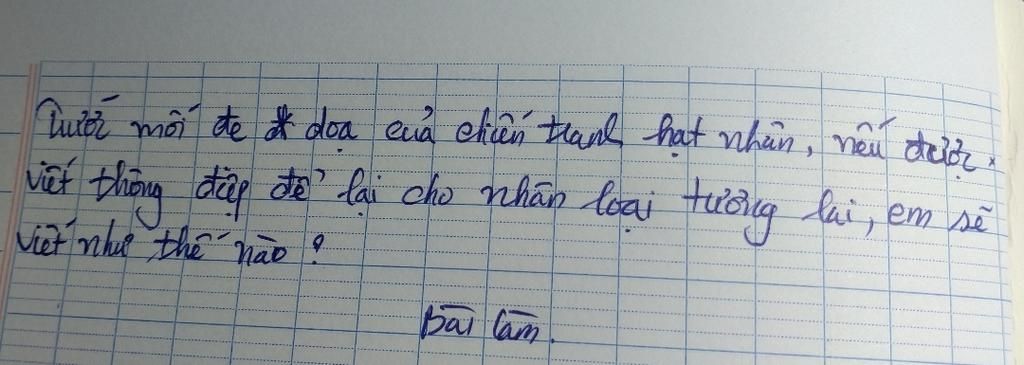 Trước mối đe doạ của chiến tranh hạt nhân, nếu được
viết thông điệp để lại cho nhân loại tương lai, em sẽ
viết như thế nào?
Bài làm.